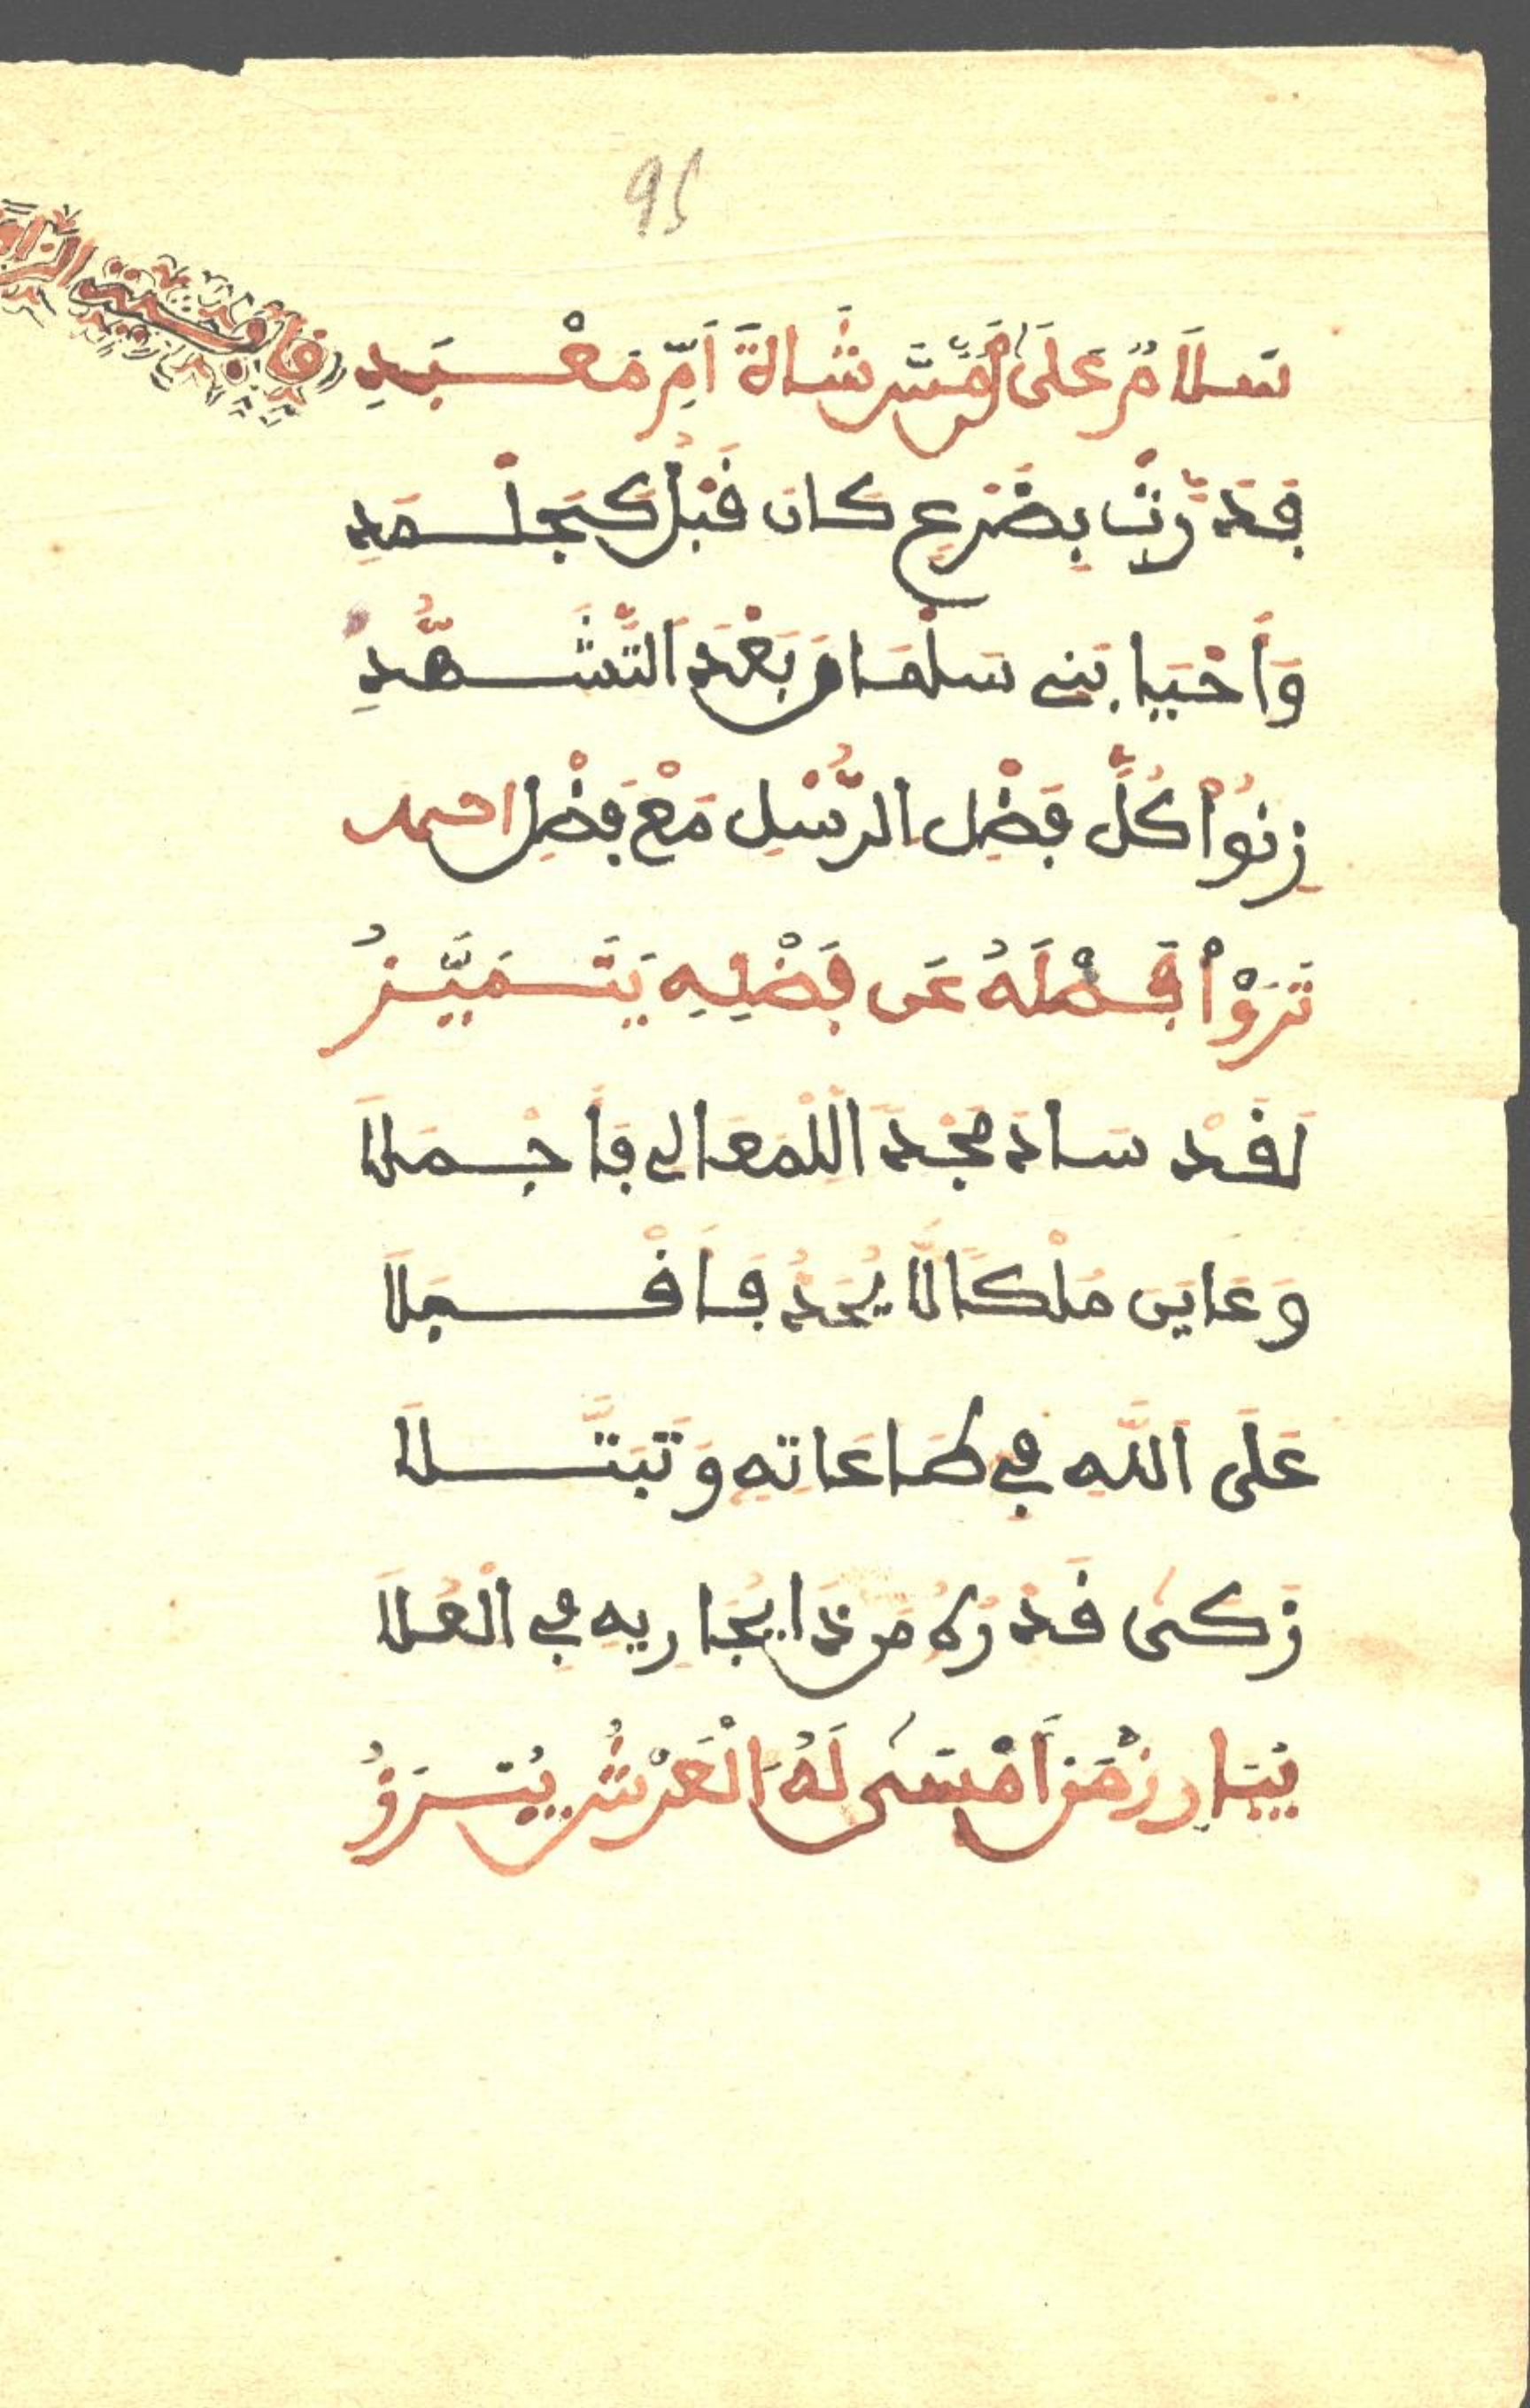 95
قافية الز
سَلَامٌ عَلَىٰ مَن مَسَّ شَاةَ أُمِّ مَعْبَدِ
فَدَرَّتْ بِضَرْعٍ كَانَ قَبْلُ كَجَلْمَدِ
وَأَحْيَا بَنِي سَلْمَا وَبَعْدَ التَّشَهُّدِ
زِنُواْ كُلَّ فَضْلِ الرُّسْلِ مَعْ فَضْلِ احمد
تَرَوْاْ فَضْلَهُ عَن فَضْلِهِ يَتَمَيَّزُ
لَقَدْ سَادَ مَجْدَ اَلْمَعَالِي فَأَجْمَلَا
وَعَايَنَ مُلْكًا لَّا يُحَدُّ فَأَقْبَلَا
عَلَى اَللَّهِ فِي طَاعَاتِهِ وَتَبَتَّلَا
زَكَىٰ قَدْرُهُ مَن ذَا يُجَارِيهِ فِي الْعُلَا
يُبَارِزُ مَنْ أَمْسَىٰ لَهُ اَلْعَرْشُ يُبْرَزُ